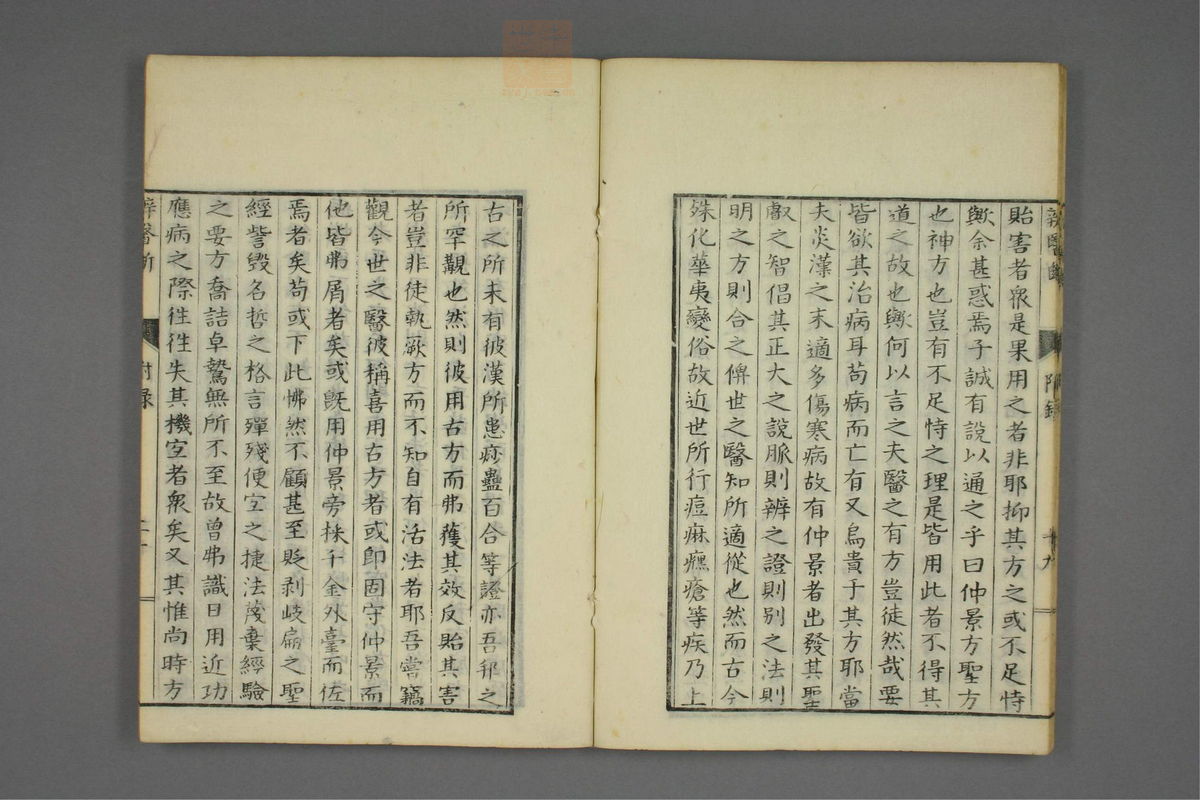 貽害者衆是果用之者非耶抑其方之或不足恃
歟余甚惑焉子誠有說以通之乎曰仲景方聖方
也神方也豈有不足恃之理是皆用此者不得其
道之故也歟何以言之夫醫之有方豈徒然哉要
皆欲其治病耳苟病而亡有又烏貴于其方耶當
夫炎漢之末適多傷寒病故有仲景者出發其聖
叡之智倡其正大之說脈則辨之證則別之法則
明之方則合之俾世之醫知所適從也然而古今
殊化華夷變俗故近世所行痘麻癰瘡等疾乃上
附錄
十九
古之所未有彼漢所患痧蠱百合等證亦吾邦之
所罕觀也然則彼用古方而弗獲其效反貽其害
者豈非徒執厥方而不知自有活法者耶吾嘗竊
觀今世之醫彼稱喜用古方者或卽固守仲景而
他皆弗屑者矣或旣用仲景旁採千金外臺而佐
焉者矣苟或下此怫然不顧甚至貶剥岐扁之聖
經訾毀名哲之格言殫殘便宜之捷法蔑棄經驗
之要方喬詰卓鷙無所不至故曾弗識日用近功
應病之際徃徃失其機宜者衆矣又其惟尚時方
辨醫斷
附錄